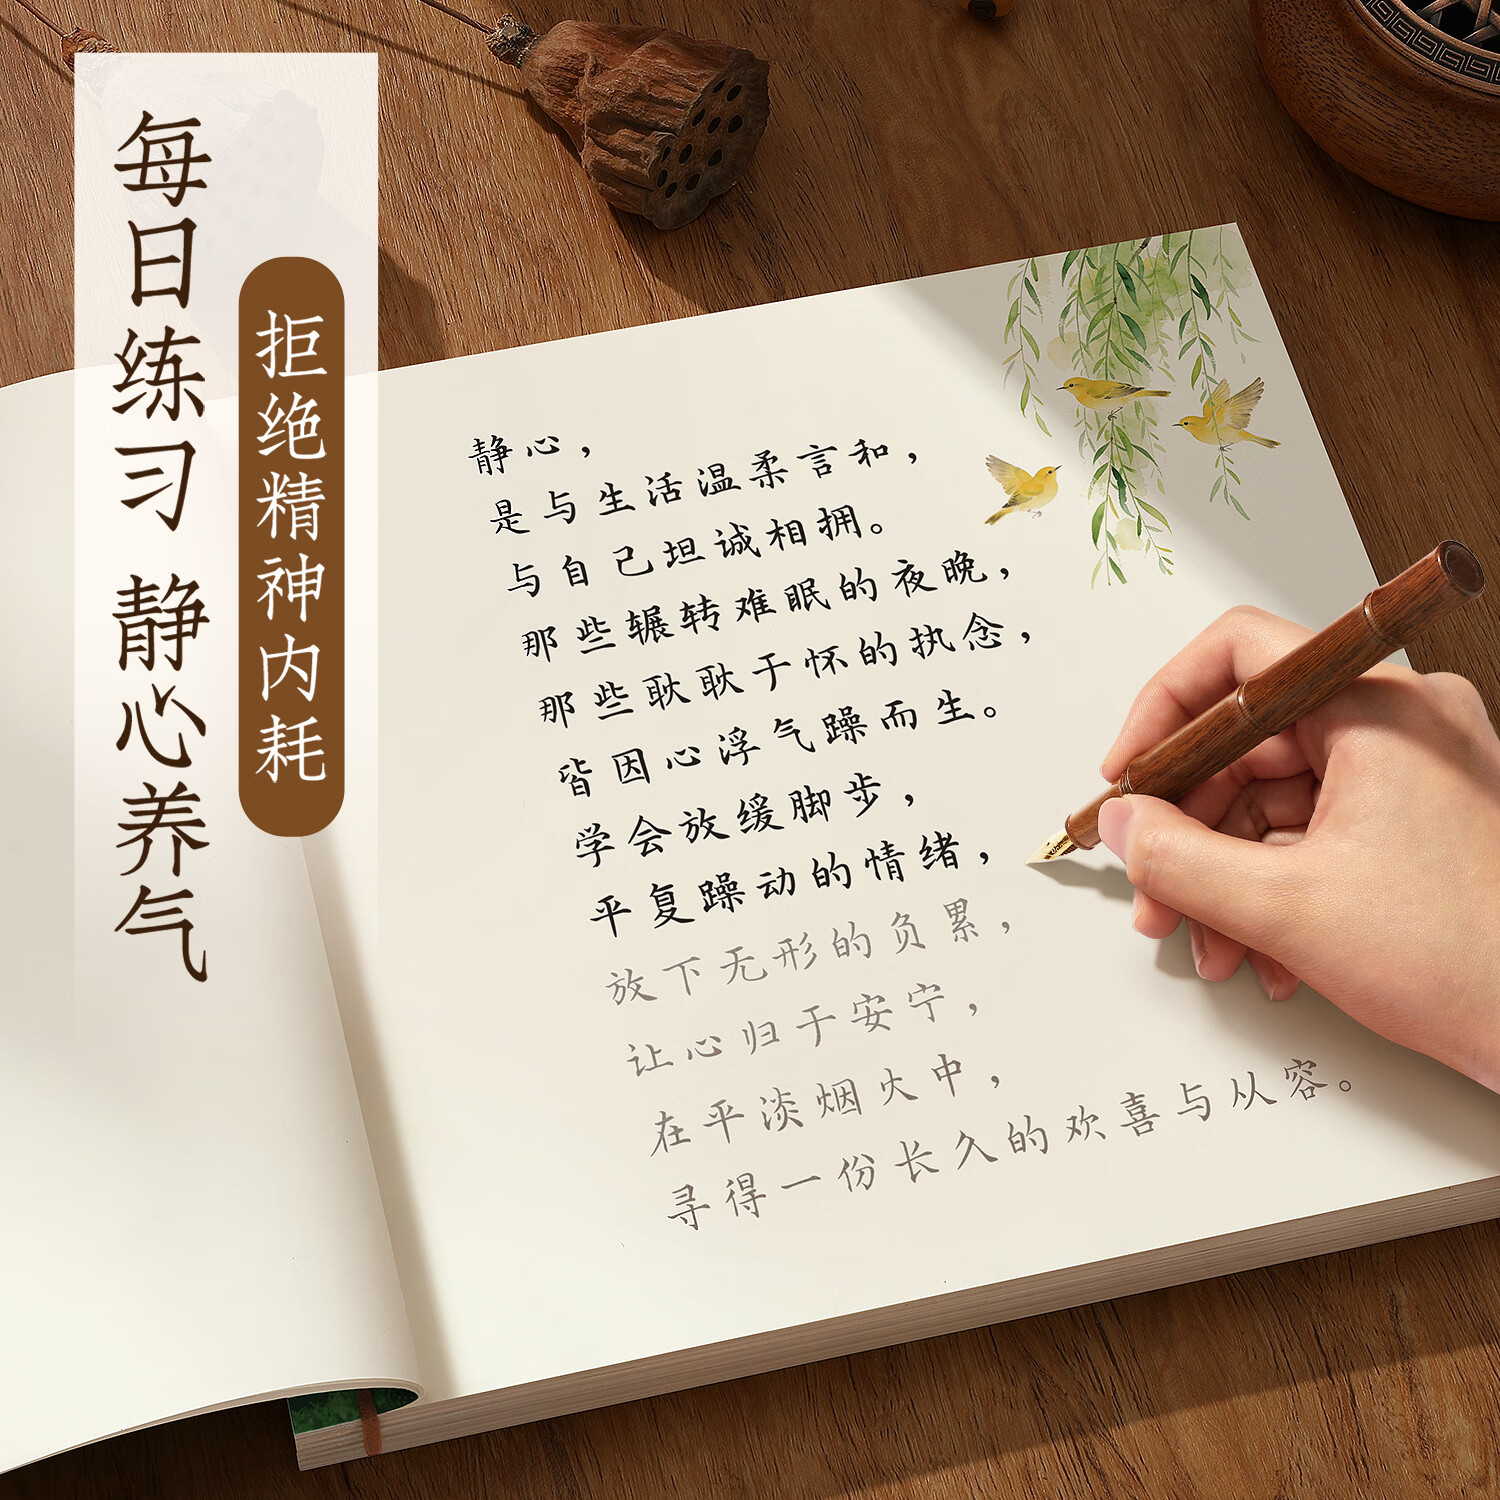 每日练习 静心养气
拒绝精神内耗
静心，
是与生活温柔言和，
与自己坦诚相拥。
那些辗转难眠的夜晚，
那些耿耿于怀的执念，
皆因心浮气躁而生。
学会放缓脚步，
平复躁动的情绪，
放下无形的负累，
让心归于安宁，
在平淡烟火中，
寻得一份长久的欢喜与从容。